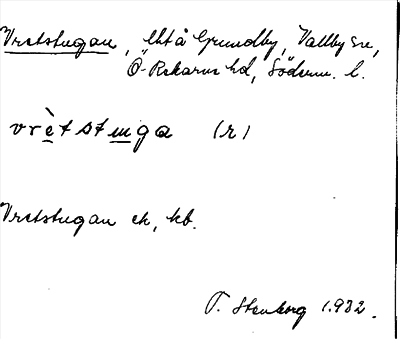 Vretstugan, lht å Grundby, Vallby sn,
Ö-Rekarne hd, Söderm. l.
vrètstuga (r)
Vretstugan ek, kb.
T. Stenborg 1932.